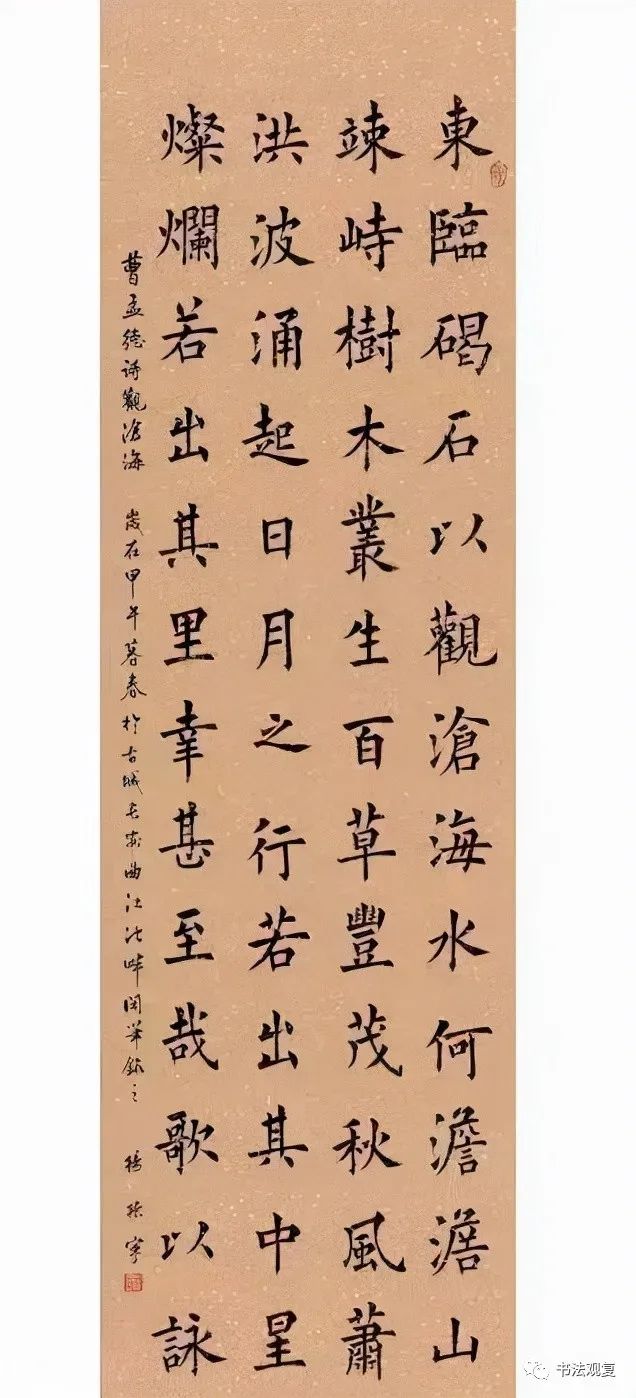 東臨碣石以觀滄海水何澹澹山
竦峙樹木叢生百草豐茂秋風蕭
洪波涌起日月之行若出其中星
燦爛若出其里幸甚至哉歌以詠
曹孟德詩觀滄海 歲在甲午暮春於古城長安曲江池畔閑筆錄之 楊
书法观复